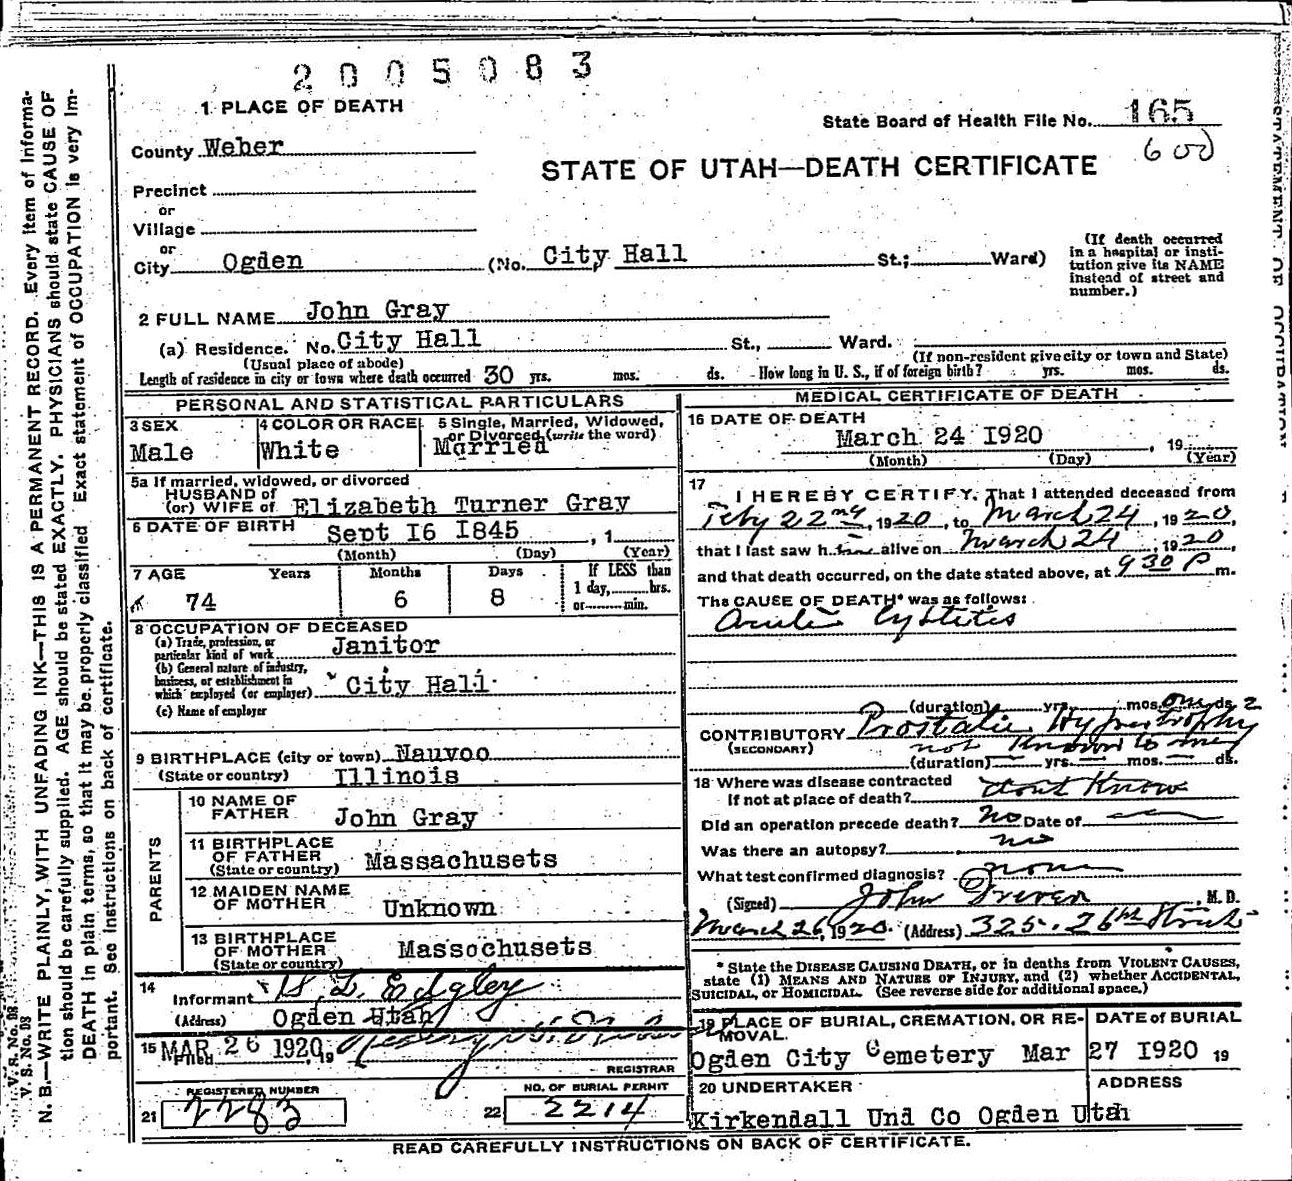 2005083
1 PLACE OF DEATH
State Board of Health File No. 165
600
County Weber
STATE OF UTAH—DEATH CERTIFICATE
Precinct
or
Village
or
City Ogden (No. City Hall St.; Ward)
(If death occurred in a hospital or institution give its NAME instead of street and number.)
2 FULL NAME John Gray
(a) Residence. No. City Hall St., Ward.
(Usual place of abode) (If non-resident give city or town and State)
Length of residence in city or town where death occurred 30 yrs. mos. ds. How long in U. S., if of foreign birth? yrs. mos. ds.
PERSONAL AND STATISTICAL PARTICULARS
3 SEX
Male
4 COLOR OR RACE
White
5 Single, Married, Widowed,
or Divorced (write the word)
Married
5a If married, widowed, or divorced
HUSBAND of
(or) WIFE of Elizabeth Turner Gray
6 DATE OF BIRTH Sept I6 I845 , 1
(Month) (Day) (Year)
7 AGE Years Months Days If LESS than
1 day, hrs.
or min.
74 6 8
8 OCCUPATION OF DECEASED
(a) Trade, profession, or
particular kind of work Janitor
(b) General nature of industry,
business, or establishment in
which employed (or employer) City Hall
(c) Name of employer
9 BIRTHPLACE (city or town) Nauvoo
(State or country) Illinois
PARENTS
10 NAME OF
FATHER John Gray
11 BIRTHPLACE
OF FATHER Massachusets
(State or country)
12 MAIDEN NAME
OF MOTHER Unknown
13 BIRTHPLACE
OF MOTHER Massochusets
(State or country)
14
Informant Edgley
(Address) Ogden Utah
15 MAR 26 1920, 19
Filed
REGISTRAR
REGISTERED NUMBER
21 2283
NO. OF BURIAL PERMIT
22 2214
MEDICAL CERTIFICATE OF DEATH
16 DATE OF DEATH
March 24 I920 , 19
(Month) (Day) (Year)
17
I HEREBY CERTIFY, That I attended deceased from
Feby 22nd, 1920, to March 24, 1920,
that I last saw him alive on March 24 1920,
and that death occurred, on the date stated above, at 9 30 P m.
The CAUSE OF DEATH* was as follows:
Cystitis
(duration) yrs. mos. one ds. 2
CONTRIBUTORY Prostatic Hypertrophy
(SECONDARY) not Known to me
(duration) — yrs. — mos. — ds.
18 Where was disease contracted
If not at place of death? dont Know
Did an operation precede death? No Date of
Was there an autopsy? no
What test confirmed diagnosis? none
(Signed) John , M. D.
March 26, 1920. (Address) 325. 26th Street
* State the DISEASE CAUSING DEATH, or in deaths from VIOLENT CAUSES,
state (1) MEANS AND NATURE OF INJURY, and (2) whether ACCIDENTAL,
SUICIDAL, or HOMICIDAL. (See reverse side for additional space.)
19 PLACE OF BURIAL, CREMATION, OR RE-
MOVAL.
DATE of BURIAL
Ogden City Cemetery Mar 27 I920 19
20 UNDERTAKER
ADDRESS
Kirkendall Und Co Ogden Utah
READ CAREFULLY INSTRUCTIONS ON BACK OF CERTIFICATE.
V. S. No. D8
N. B.—WRITE PLAINLY, WITH UNFADING INK—THIS IS A PERMANENT RECORD. Every item of informa-
tion should be carefully supplied. AGE should be stated EXACTLY. PHYSICIANS should state CAUSE OF
DEATH in plain terms, so that it may be properly classified. Exact statement of OCCUPATION is very im-
portant. See instructions on back of certificate.
STATEMENT OF OCCUPATION